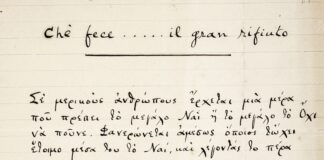 Che fece ..... il gran rifiuto
Σὲ μερικοὺς ἀνθρώπους ἔρχεται μιὰ μέρα
ποῦ πρέπει τὸ μεγάλο Ναὶ ἢ τὸ μεγάλο τὸ Ὄχι
νὰ ποῦνε. Φανερώνεται ἀμέσως ὅποιος τὤχει
ἕτοιμο μέσα του τὸ Ναί, καὶ λέγοντάς το πέρα